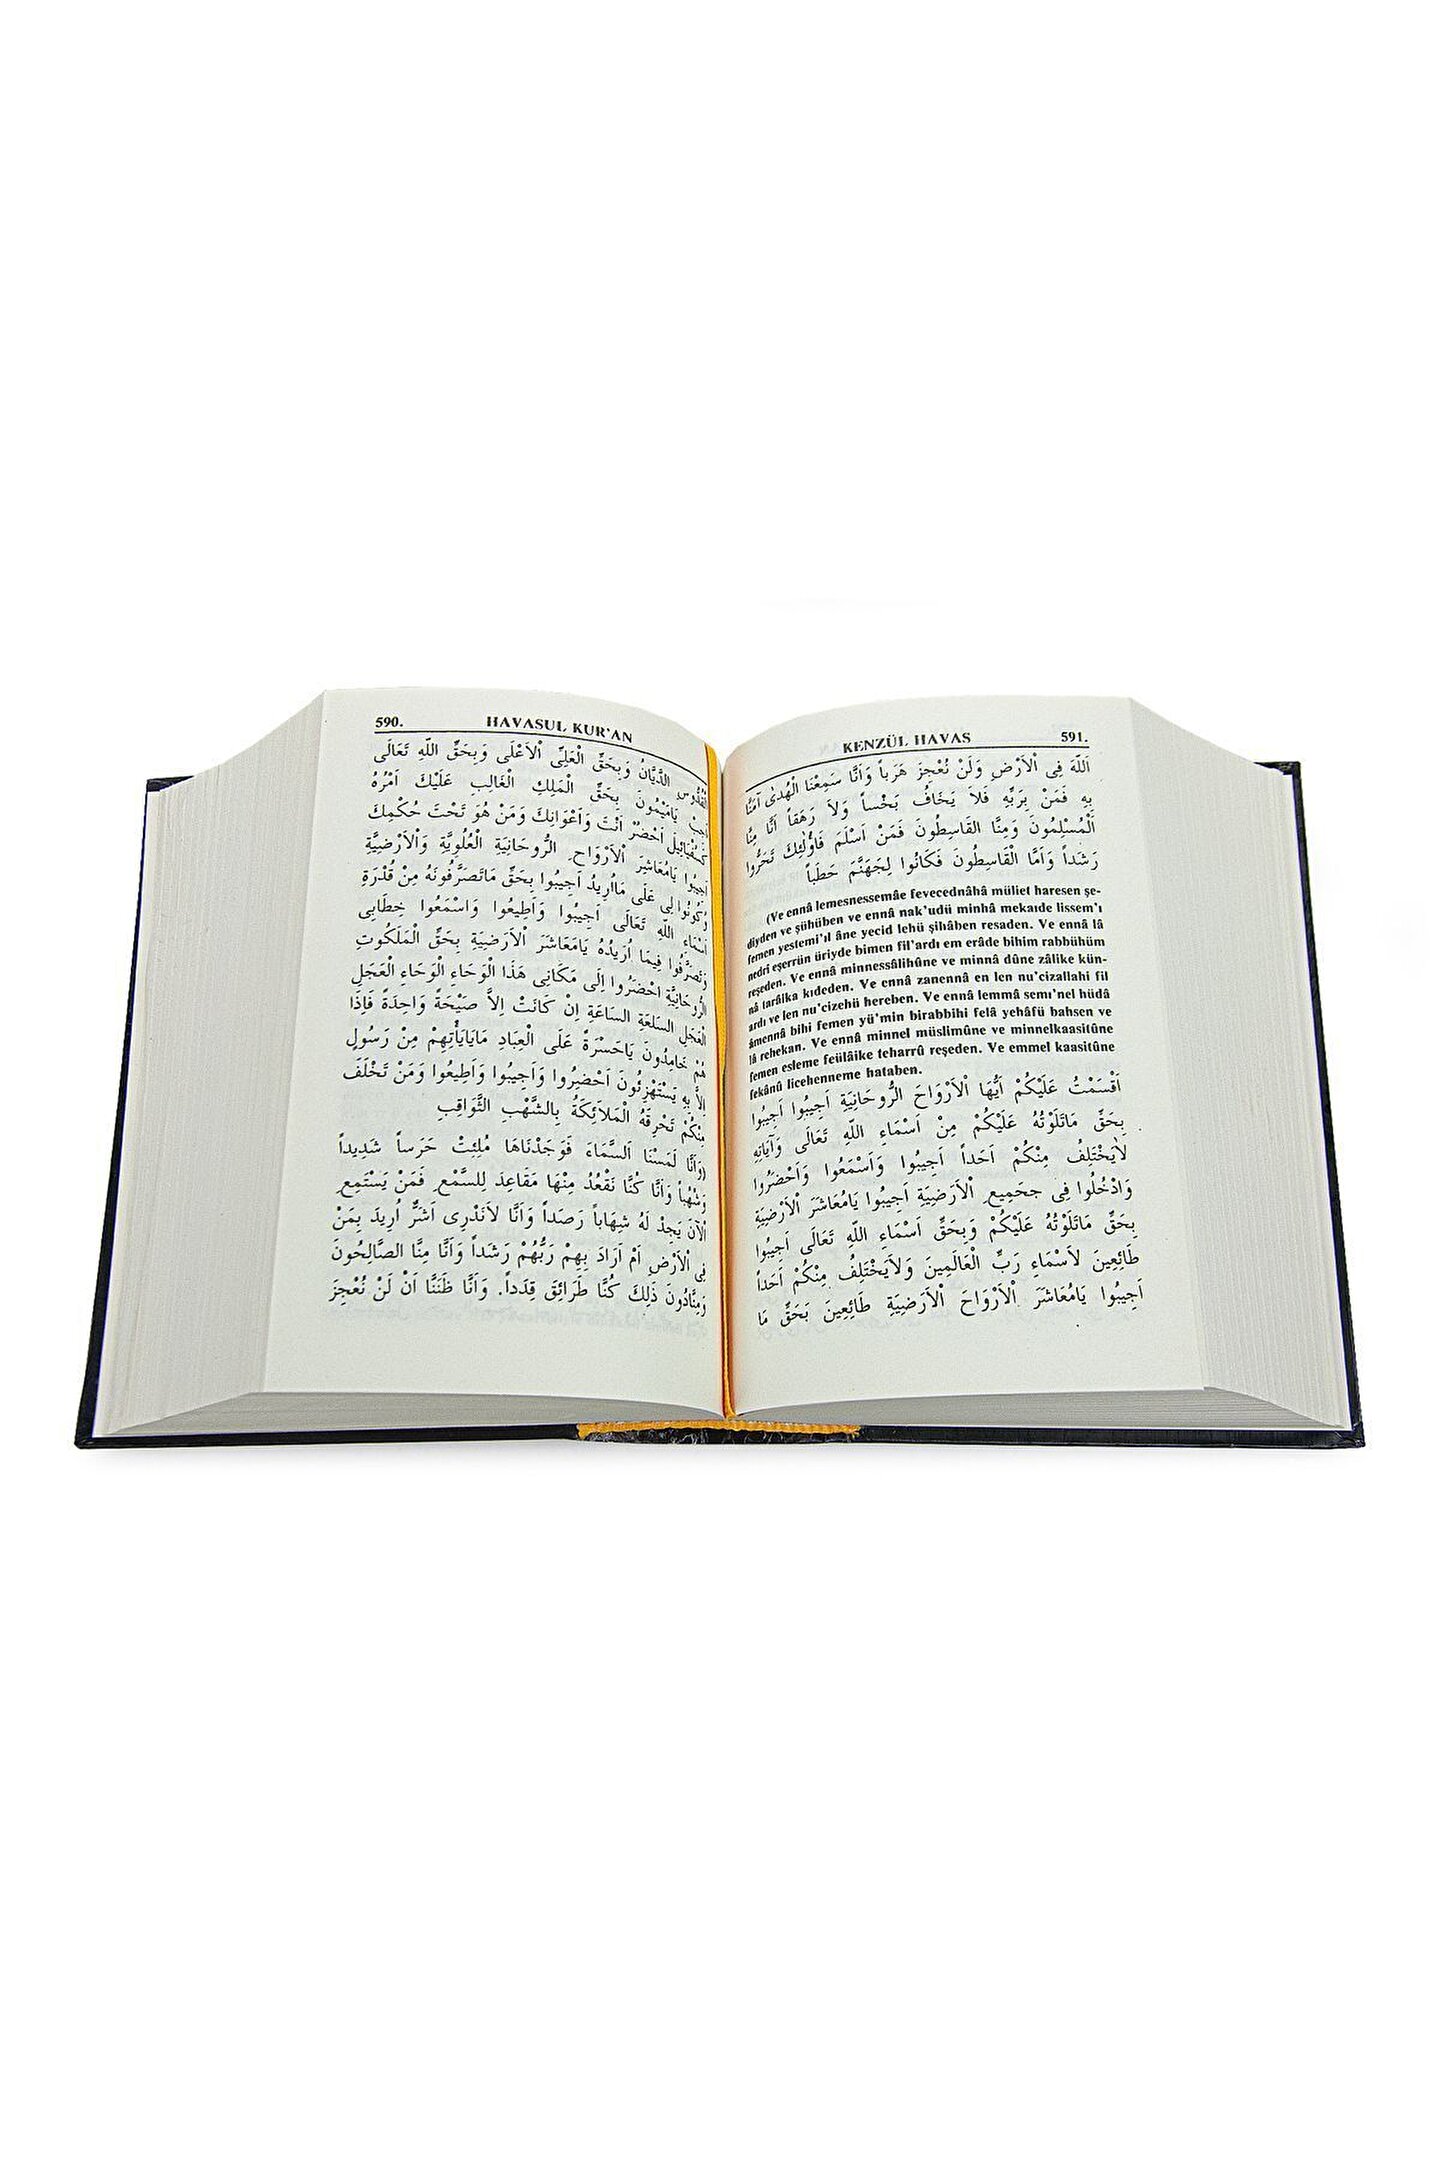 590. HAVASUL KUR'AN
الْقُدُّوسِ الدَّيَّانُ وَبِحَقِّ الْعَلِيِّ اْلاَعْلَى وَبِحَقِّ اللّهِ تَعَالَى
اَجِبْ يَامَيْمُونَ بِحَقِّ الْمَلِكِ الْغَالِبِ عَلَيْكَ اَمْرُهُ
اَحْضُرْ اَنْتَ وَاَعْوَانِكَ وَمَنْ هُوَ تَحْتَ حُكْمِكَ
اَجِيبُوا يَامُعَاشِرَ اْلاَرْوَاحِ الرُّوحَانِيَةِ الْعُلْوِيَّةِ وَاْلاَرْضِيَّةِ
وَكُونُوا لِى عَلَى مَااُرِيدُ اَجِيبُوا بِحَقِّ مَاتَصَرَّفُونَهُ مِنْ قُدْرَةِ
اَسْمَاءِ اللّهِ تَعَالَى اَجِيبُوا وَاَطِيعُوا وَاسْمَعُوا خِطَابِى
وَتَصَرَّفُوا فِيمَا اُرِيدُهُ يَامَعَاشَرَ اْلاَرَضِيَةِ بِحَقِّ الْمَلَكُوتِ
الرُّوحَانِيَّةِ احْضَرُوا اِلَى مَكَانِى هَذَا الْوَحَاءِ الْوَحَاءِ الْعَجَلِ
الْعَجَلِ السَلعَةِ السَاعَةِ اِنْ كَانَتْ اِلاَّ صَيْحَةً وَاحِدَةً فَاِذَا
هُمْ خَامِدُونَ يَاحَسْرَةً عَلَى الْعِبَادِ مَايَايَأْتِهِمْ مِنْ رَسُولٍ
اِلاَّ بِهِ يَسْتَهْزِئُونَ اَحْضِرُوا وَاَجِيبُوا وَاَطِيعُوا وَمَنْ تَخَْلَفَ
مِنْكُمْ تَحْرِقَهُ الْمَلاَئِكَةُ بِالشُّهْبِ الثَّوَاقِبِ
(وَاَنَّا لَمَسْنَا اَلسَّمَاءَ فَوَجَدْنَاهَا مُلِئِتْ حَرَساً شَدِيداً
وَشُهُباً وَاَنَّا كُنَّا نَقْعُدُ مِنْهَا مَقَاعِدَ لِلسَّمْعِ فَمَنْ يَسْتَمِعِ
اْلآنَ يَجِدْ لَهُ شِهَاباً رَصَداً وَاَنَّا لاَنَدْرِى اَشَرٌّ اُرِيدَ بِمَنْ
فِى اْلاَرْضِ اَمْ اَرَادَ بِهِمْ رَبُّهُمْ رَشَداً وَاَنَّا مِنَّا الصَّالِحُونَ
وَمِنَّادُونَ ذَلِكَ كُنَّا طَرَائِقَ قِدَداً. وَاَنَّا ظَنَنَّا اَنْ لَنْ نُعْجِزَ
KENZÜL HAVAS 591.
اَللّهَ فِى اْلاَرْضِ وَلَنْ نُعْجِزَ هَرَباً وَاَنَّا سَمِعْنَا الْهُدٰى آمَنَّا
بِهِ فَمَنْ بِرَبِّهِ فَلاَ يَخَافُ بَخْساً وَلاَ رَهَقاً اَنَّا مِنَّا
اَلْمُسْلِمُونَ وَمِنَّا القَاسِطُونَ فَمَنْ اَسْلَمَ فَاُولٰئِكَ تَحَرُّوا
رَشَداً وَاَمَّا الْقَاسِطُونَ فَكَانُوا لِجَهَنَّمَ حَطَباً
(Ve ennâ lemesnessemâe fevecednâhâ müliet haresen şe-
diyden ve şühüben ve ennâ nak'udü minhâ mekaıde lissem'ı
femen yestemi'ıl âne yecid lehü şihâben resaden. Ve ennâ lâ
nedrî eşerrün üriyde bimen fil'ardı em erâde bihim rabbühüm
reşeden. Ve ennâ minnessâlihûne ve minnâ dûne zâlike kün-
nâ tarâika kıdeden. Ve ennâ zanennâ en len nu'cizallahi fil
ardı ve len nu'cizehü hereben. Ve ennâ lemmâ semı'nel hüdâ
âmennâ bihi femen yü'min birabbihi felâ yehâfü bahsen ve
lâ rehekan. Ve ennâ minnel müslimûne ve minnelkaasitûne
femen esleme feülâike teharrû reşeden. Ve emmel kaasitûne
fekânû licehenneme hataben.
اَقْسَمْتُ عَلَيْكُمْ اَيُّهَا اْلاَرْوَاحَ الرُّوحَانِيَةِ اَجِيبُوا اَجِيبُوا
بِحَقِّ مَاتَلَوْتُهُ عَلَيْكُمْ مِنْ اَسْمَاءِ اللّهِ تَعَالَى وَآيَاتِهِ
لاَيَخْتَلِفُ مِنْكُمْ اَحَداً اَجِيبُوا وَاَسْمَعُوا وَاَحْضَرُوا
وَادْخُلُوا فِى جَحَمِيعِ اْلاَرَضِيَةِ اَجِيبُوا يَامُعَاشَرَ اْلاَرْضِيَةِ
بِحَقِّ مَاتَلَوْتُهُ عَلَيْكُمْ وَبِحَقِّ اَسْمَاءِ اللّهِ تَعَالَى اَجِيبُوا
طَائِعِينَ لاَسْمَاءِ رَبِّ الْعَالَمِينَ وَلاَيَخْتَلِفُ مِنْكُمْ اَحَداً
اَجِيبُوا يَامُعَاشَرَ اْلاَرْوَاحَ اْلاَرَضِيَةِ طَائِعِينَ بَحَقِّ مَا